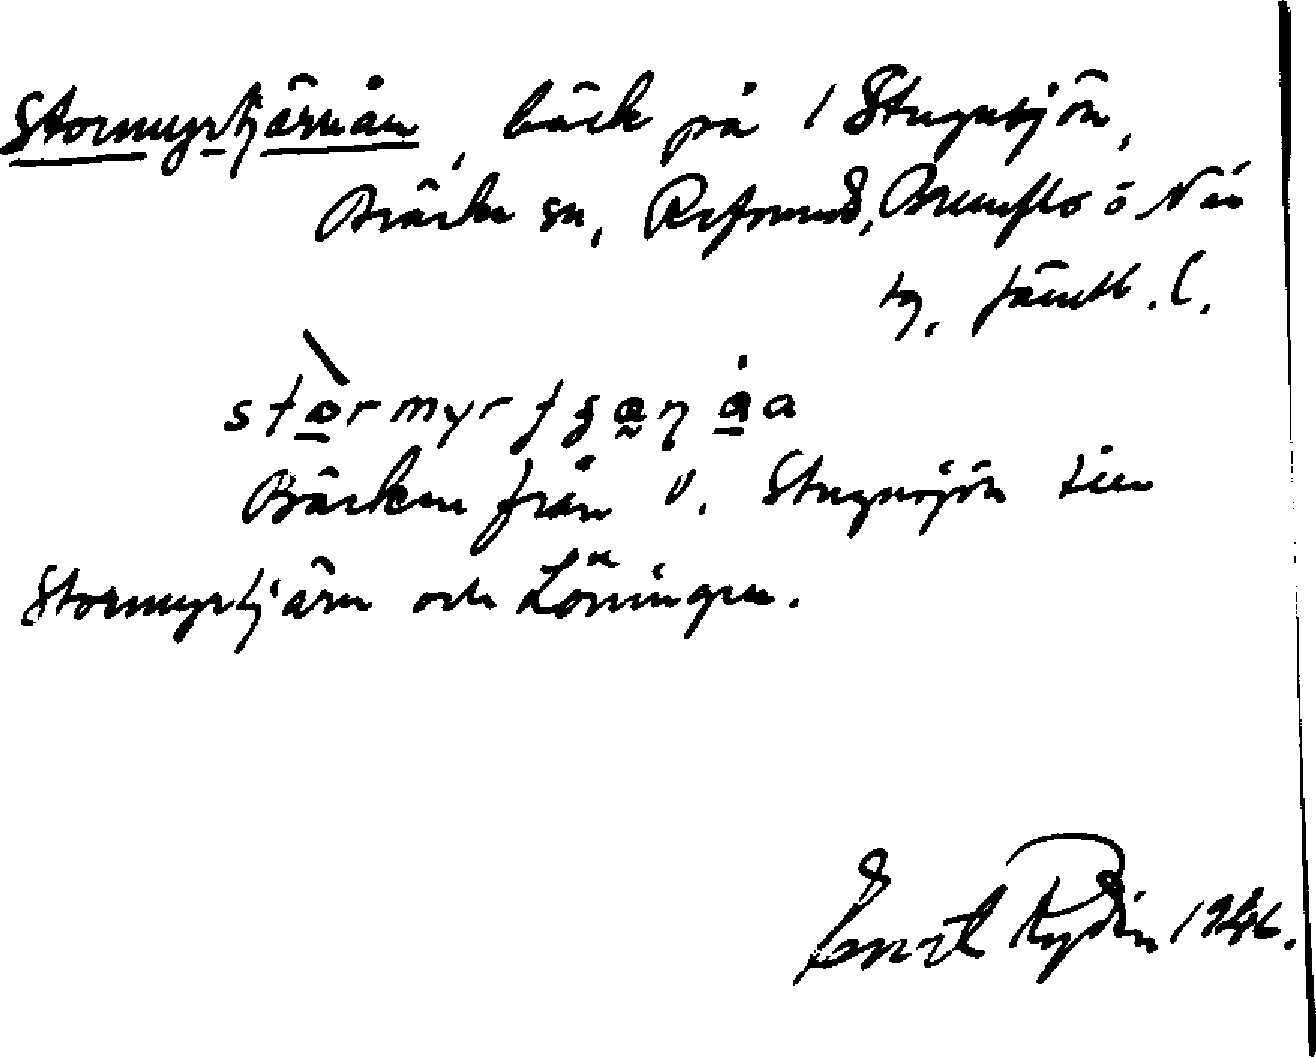 Stormyrtjärnån, bäck på 1 Stugusjön,
Bräcke sn, Refsund, Brunflo o Näs
tg, Jämtl. l.
Bäcken från V. Stugusjön till
Stormyrtjärn och Löningen.
Emil Rydin 1946.